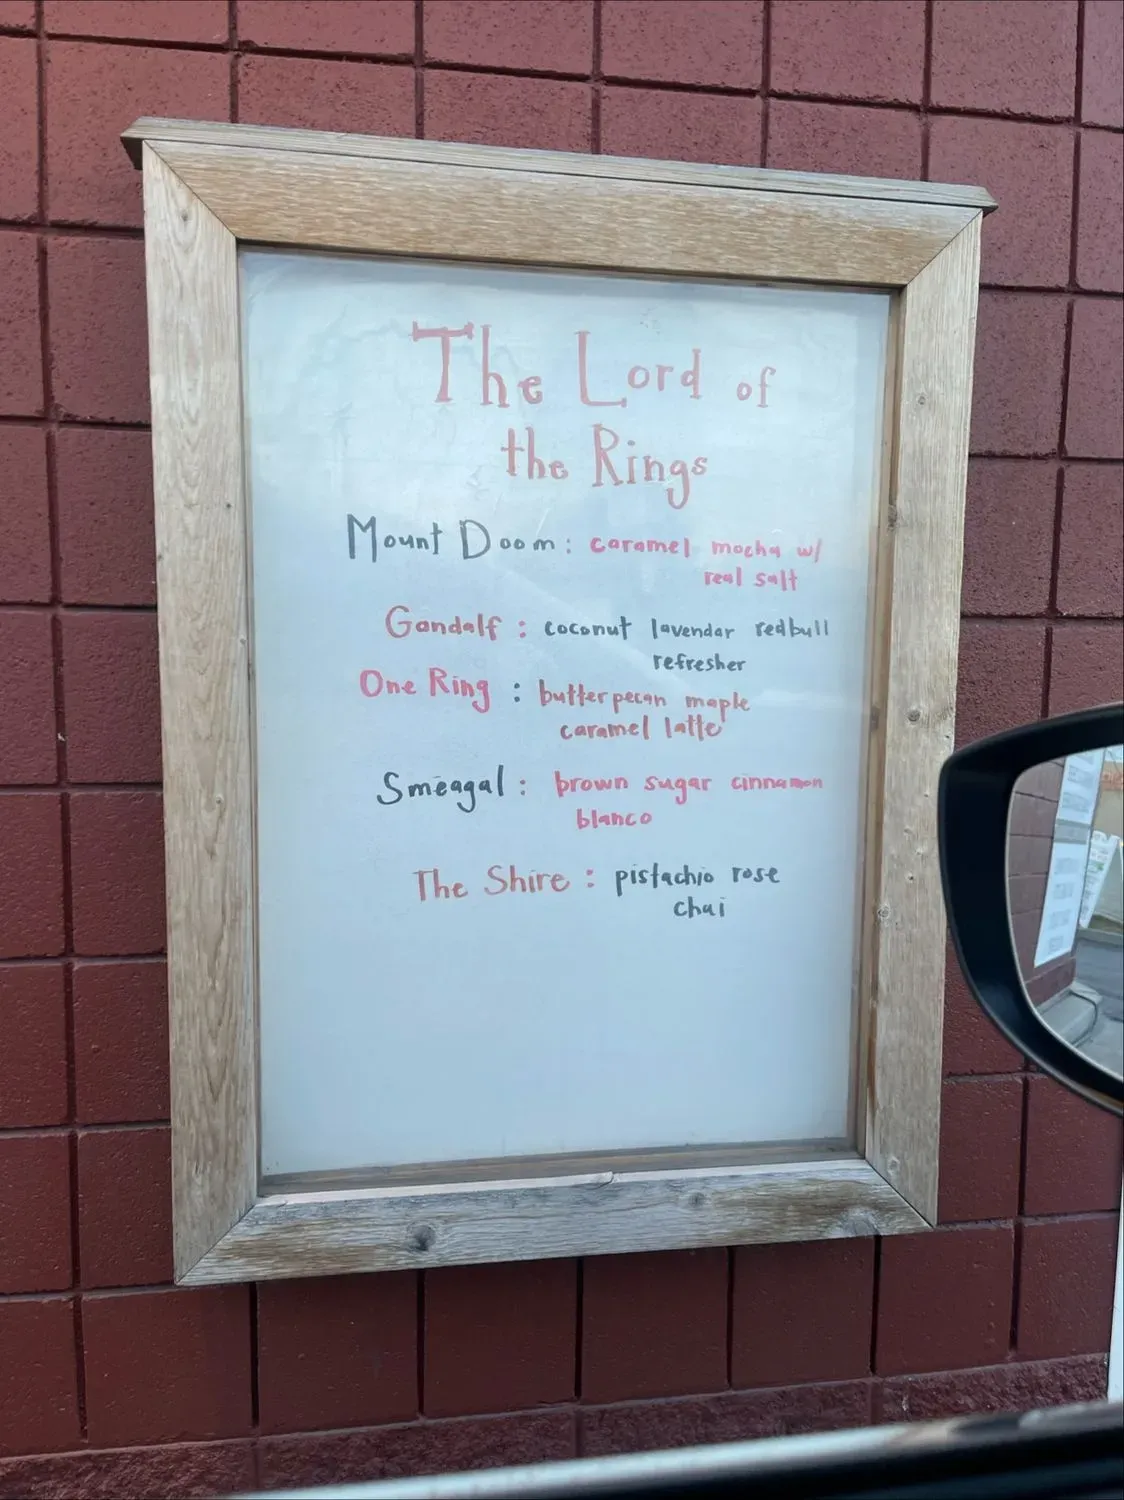 The Lord of
the Rings
Mount Doom: caramel mocha w/
real salt
Gandalf: coconut lavendar redbull
refresher
One Ring: butter pecan maple
caramel latte
Smeagal: brown sugar cinnamon
blanco
The Shire: pistachio rose
chai